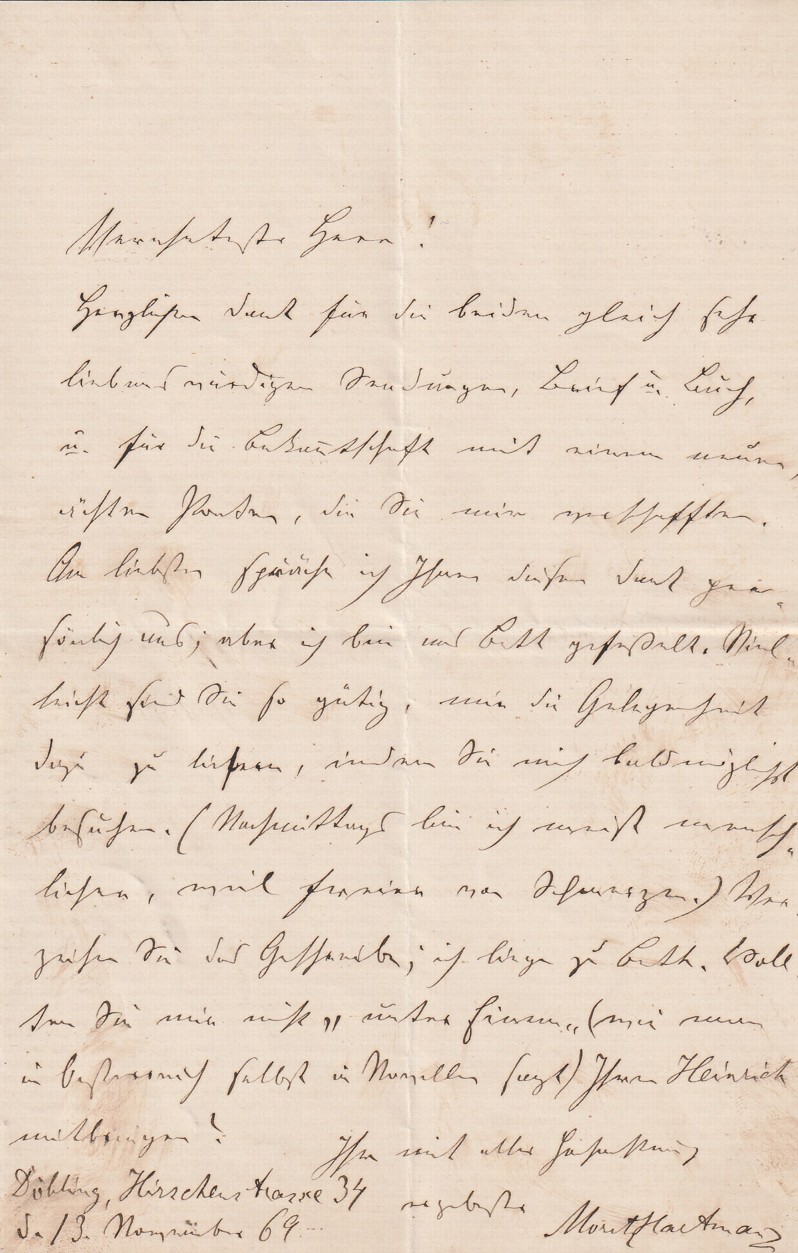 Verehrtester Herr!
Herzlichen Dank für die beiden gleich sehr
liebenswürdigen Sendungen, Brief u. Buch,
u. für die Bekanntschaft mit einem neuen,
ächten Poeten, die Sie mir verschafften.
Am liebsten spräche ich Ihnen diesen Dank per-
sönlich aus; aber ich bin ans Bett gefesselt. Viel-
leicht sind Sie so gütig, mir die Gelegenheit
dazu zu liefern, indem Sie mich baldmöglichst
besuchen. (Nachmittags bin ich meist mensch-
licher, weil freier von Schmerzen.) Ver-
zeihen Sie das Geschreibe; ich liege zu Bett. Woll
ten Sie mir nicht „unter Einem" (wie man
in Oesterreich selbst in Novellen sagt) Ihren Heinrich
mitbringen?
Ihr mit aller Hochachtung
ergebenster
Döbling, Hirschenstrasse 34
d. 13. November 69
Moritz Hartmann